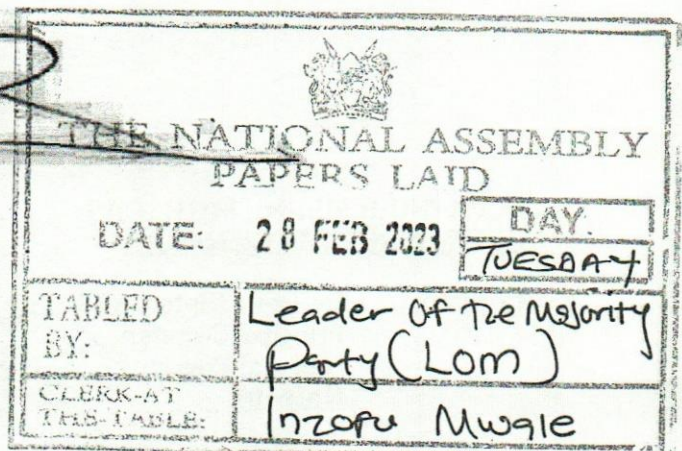 THE NATIONAL ASSEMBLY
PAPERS LAID
DATE: 28 FEB 2023
DAY.
TUESDAY
TABLED BY:
Leader Of the Majority
Party (LOM)
CLERK-AT THE-TABLE:
Inzofu Mwale